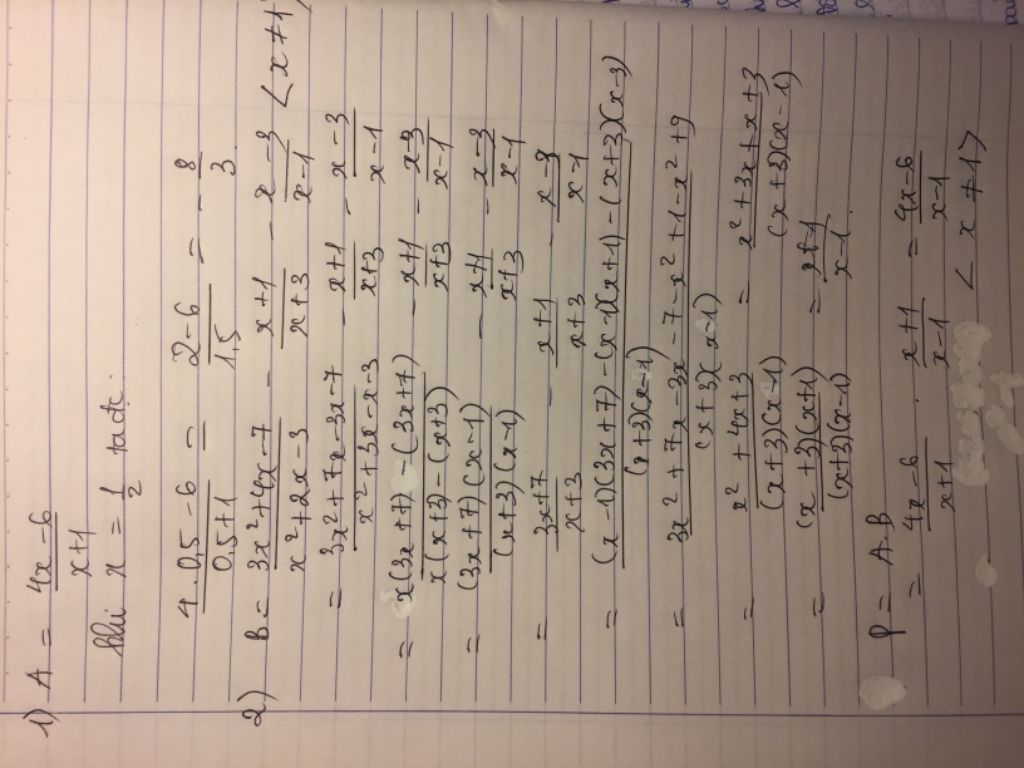 1) A = (4x-6)/(x+1)
Khi x = 1/2 ta đc:
(4.0,5-6)/(0,5+1) = (2-6)/(1,5) = -8/3
2) B = (3x²+4x-7)/(x²+2x-3) - (x+1)/(x+3) - (x-3)/(x-1) < x≠1>
= (3x²+7x-3x-7)/(x²+3x-x-3) - (x+1)/(x+3) - (x-3)/(x-1)
= (x(3x+7)-(3x+7))/(x(x+3)-(x+3)) - (x+1)/(x+3) - (x-3)/(x-1)
= ((3x+7)(x-1))/((x+3)(x-1)) - (x+1)/(x+3) - (x-3)/(x-1)
= (3x+7)/(x+3) - (x+1)/(x+3) - (x-3)/(x-1)
= ((x-1)(3x+7)-(x-1)(x+1)-(x+3)(x-3))/((x+3)(x-1))
= (3x²+7x-3x-7-x²+1-x²+9)/((x+3)(x-1))
= (x²+4x+3)/((x+3)(x-1)) = (x²+3x+x+3)/((x+3)(x-1))
= ((x+3)(x+1))/((x+3)(x-1)) = (x+1)/(x-1)
P = A.B
= (4x-6)/(x+1) . (x+1)/(x-1) = (4x-6)/(x-1)
< x ≠ 1>